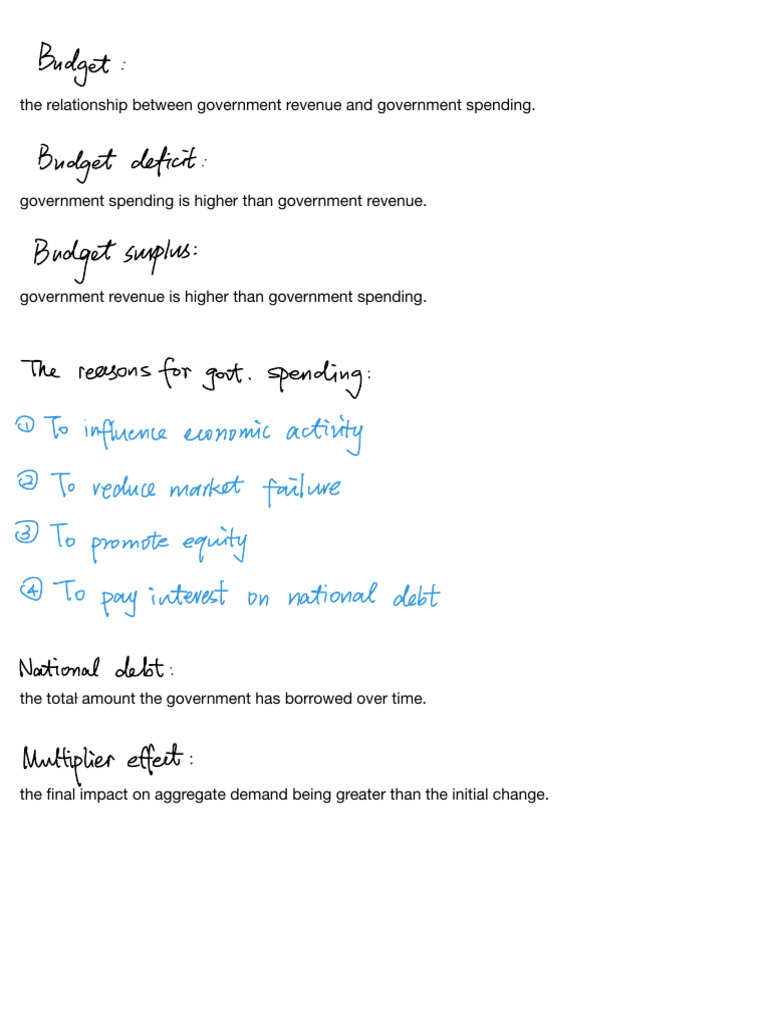 Budget:
the relationship between government revenue and government spending.
Budget deficit:
government spending is higher than government revenue.
Budget surplus:
government revenue is higher than government spending.
The reasons for govt. spending:
① To influence economic activity
② To reduce market failure
③ To promote equity
④ To pay interest on national debt
National debt:
the total amount the government has borrowed over time.
Multiplier effect:
the final impact on aggregate demand being greater than the initial change.